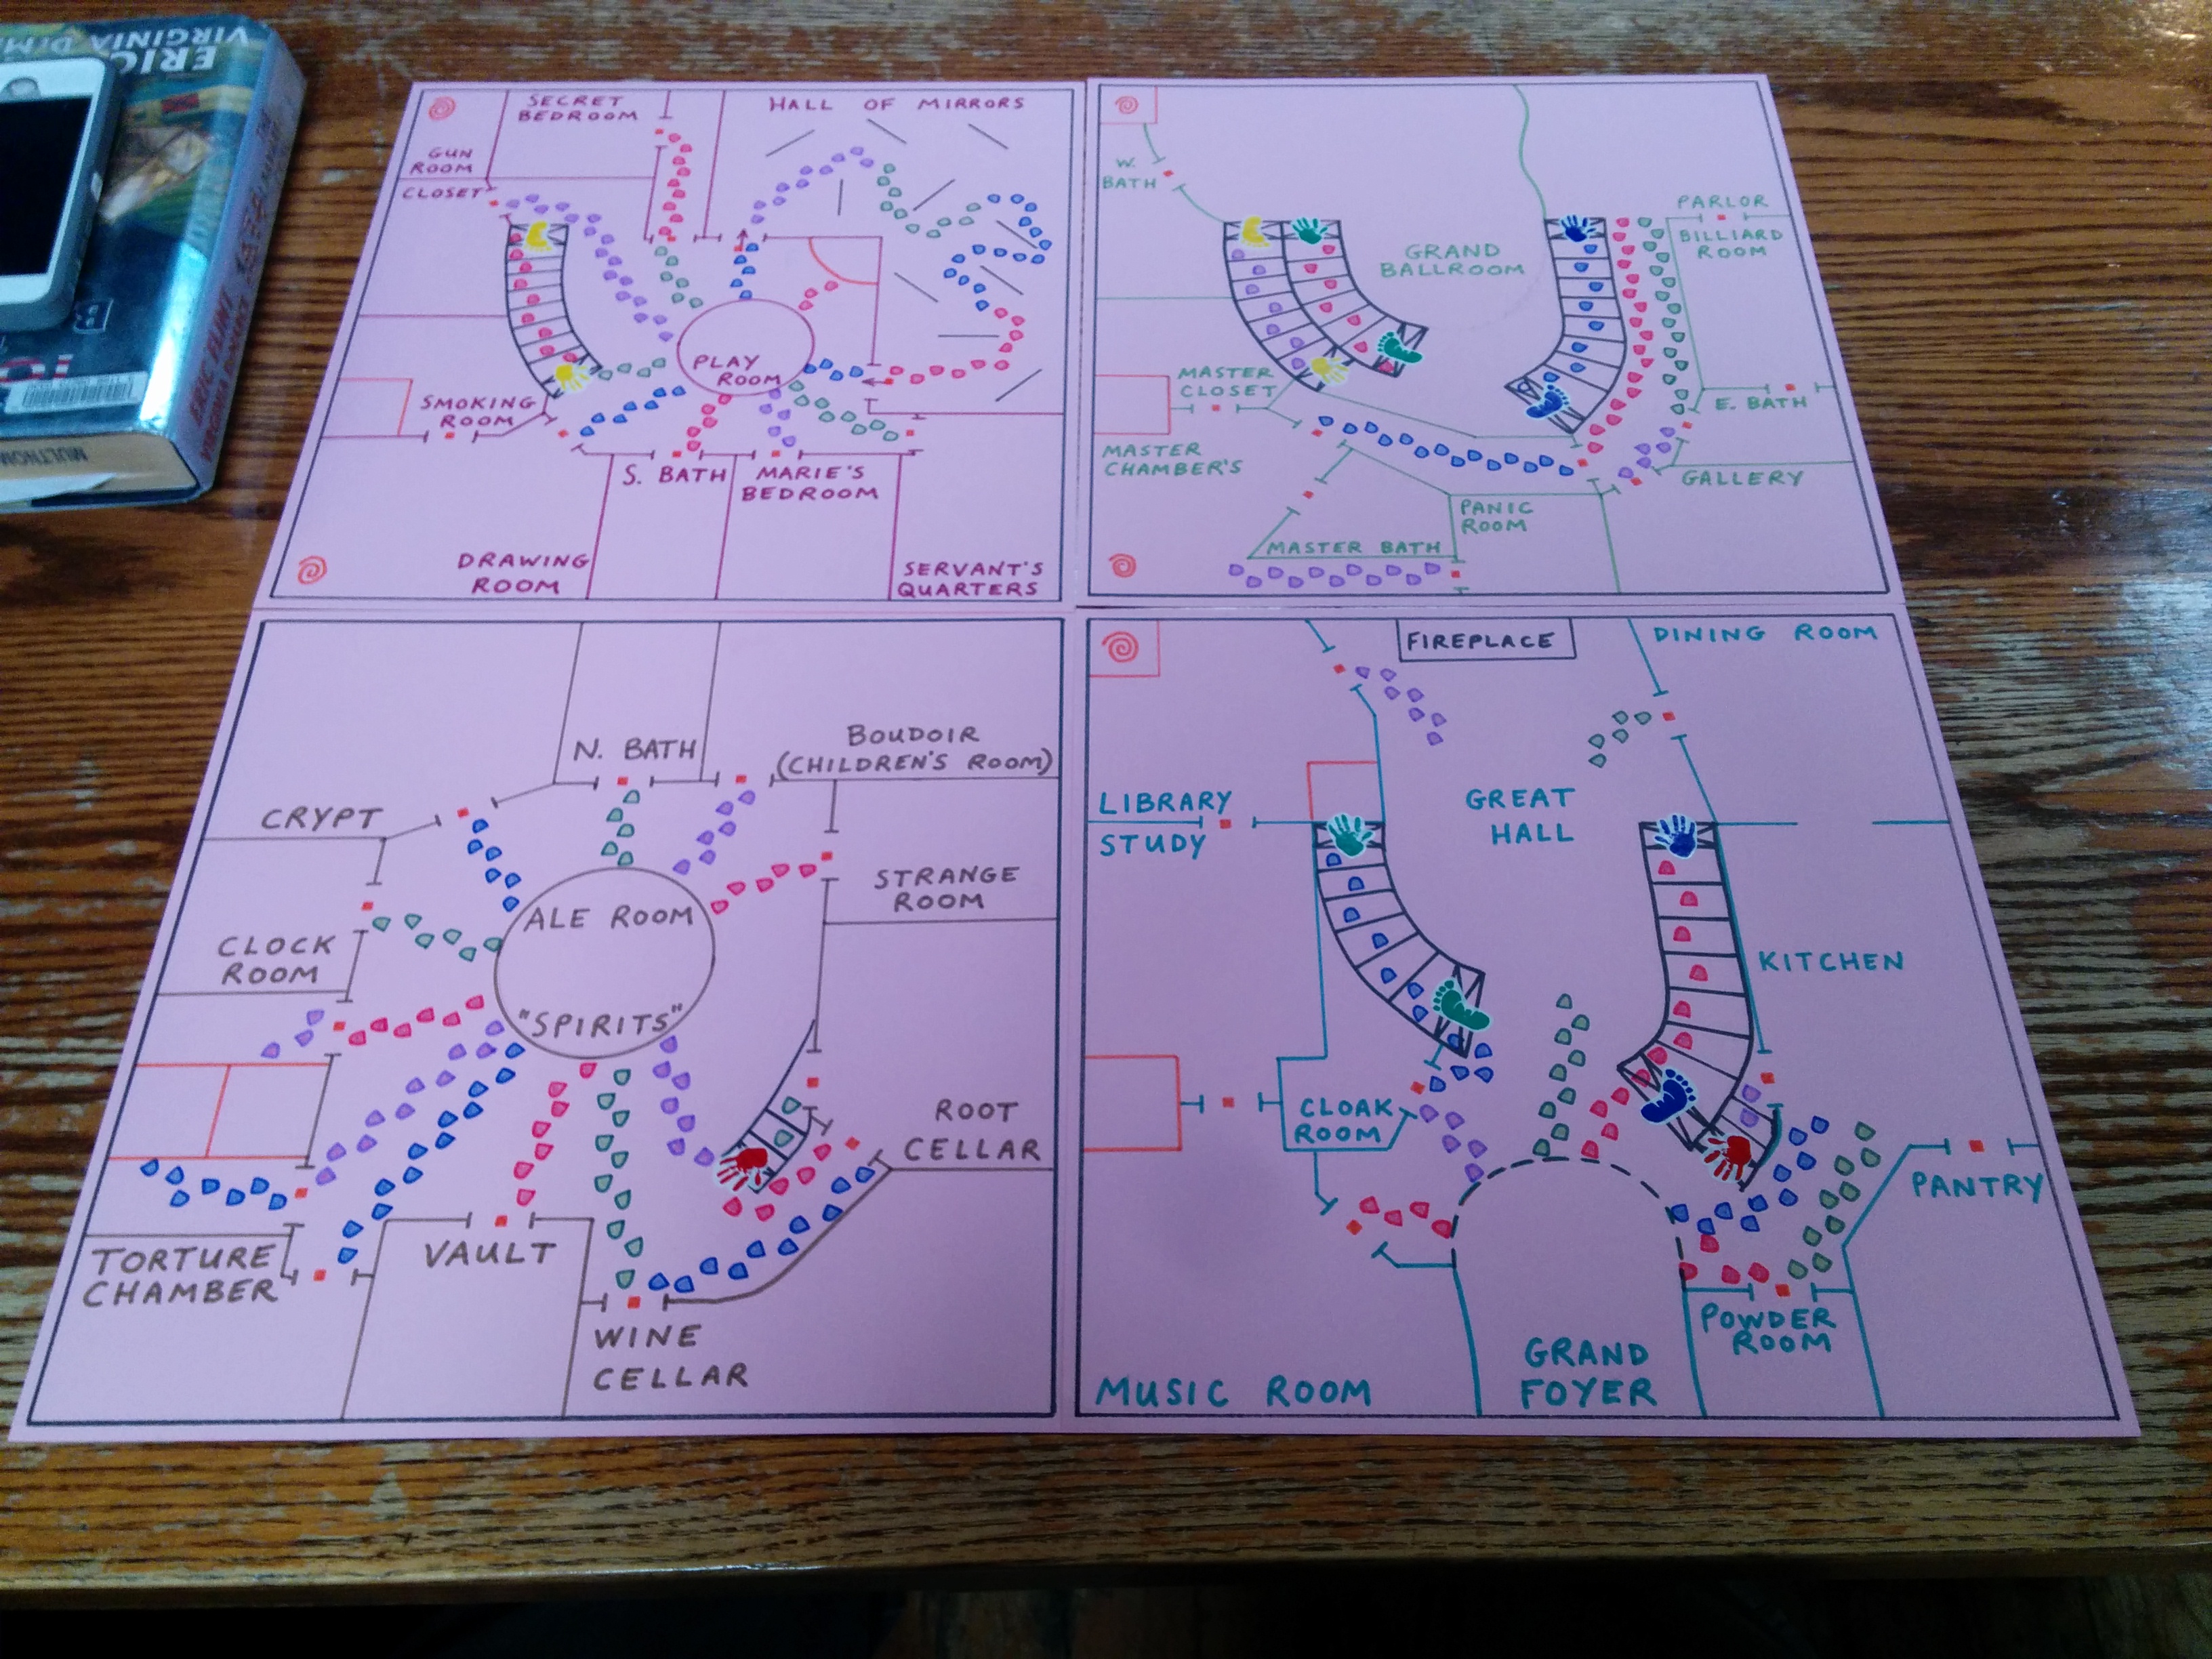 ERIC
VIRGINIA
ERIC FLINT
MULTNOM
SECRET
BEDROOM
HALL OF MIRRORS
GUN
ROOM
CLOSET
PLAY
ROOM
SMOKING
ROOM
S. BATH
MARIE'S
BEDROOM
DRAWING
ROOM
SERVANT'S
QUARTERS
W.
BATH
PARLOR
BILLIARD
ROOM
GRAND
BALLROOM
MASTER
CLOSET
E. BATH
MASTER
CHAMBER'S
GALLERY
PANIC
ROOM
MASTER BATH
N. BATH
BOUDOIR
(CHILDREN'S ROOM)
CRYPT
STRANGE
ROOM
ALE ROOM
CLOCK
ROOM
"SPIRITS"
ROOT
CELLAR
TORTURE
CHAMBER
VAULT
WINE
CELLAR
FIREPLACE
DINING ROOM
LIBRARY
STUDY
GREAT
HALL
KITCHEN
CLOAK
ROOM
PANTRY
POWDER
ROOM
MUSIC ROOM
GRAND
FOYER